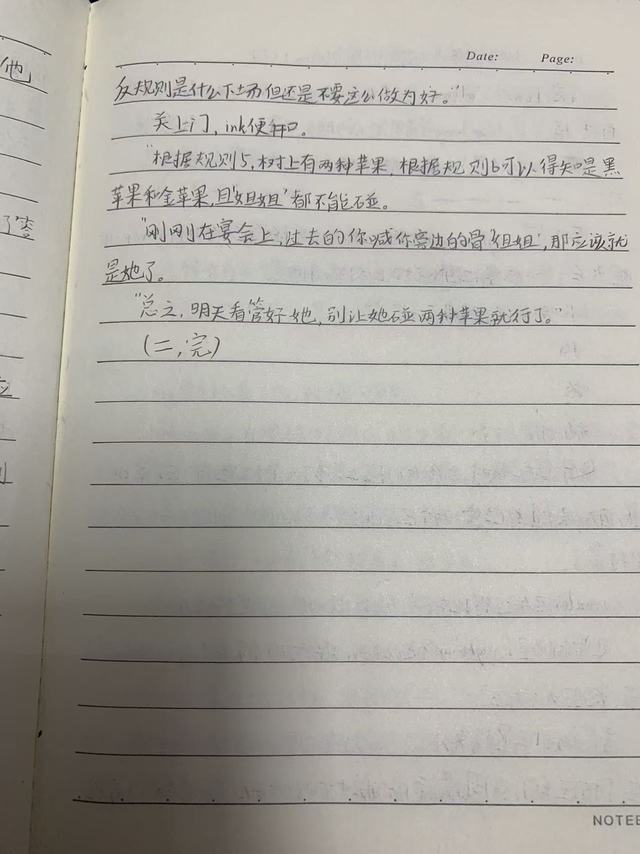 他
了查
应
Date: Page:
反规则是什么下场而但还是不要这么做为好。"
关上门,ink便开口。
"根据规则5,树上有两种苹果,根据规则6可以得知是黑
苹果和金苹果,且'姐姐'都不能碰。
"刚刚在宴会上,过去的你喊你旁边的骨'姐姐',那应该就
是她了。
"总之,明天看管好她,别让她碰两种苹果就行了。"
(二,完)